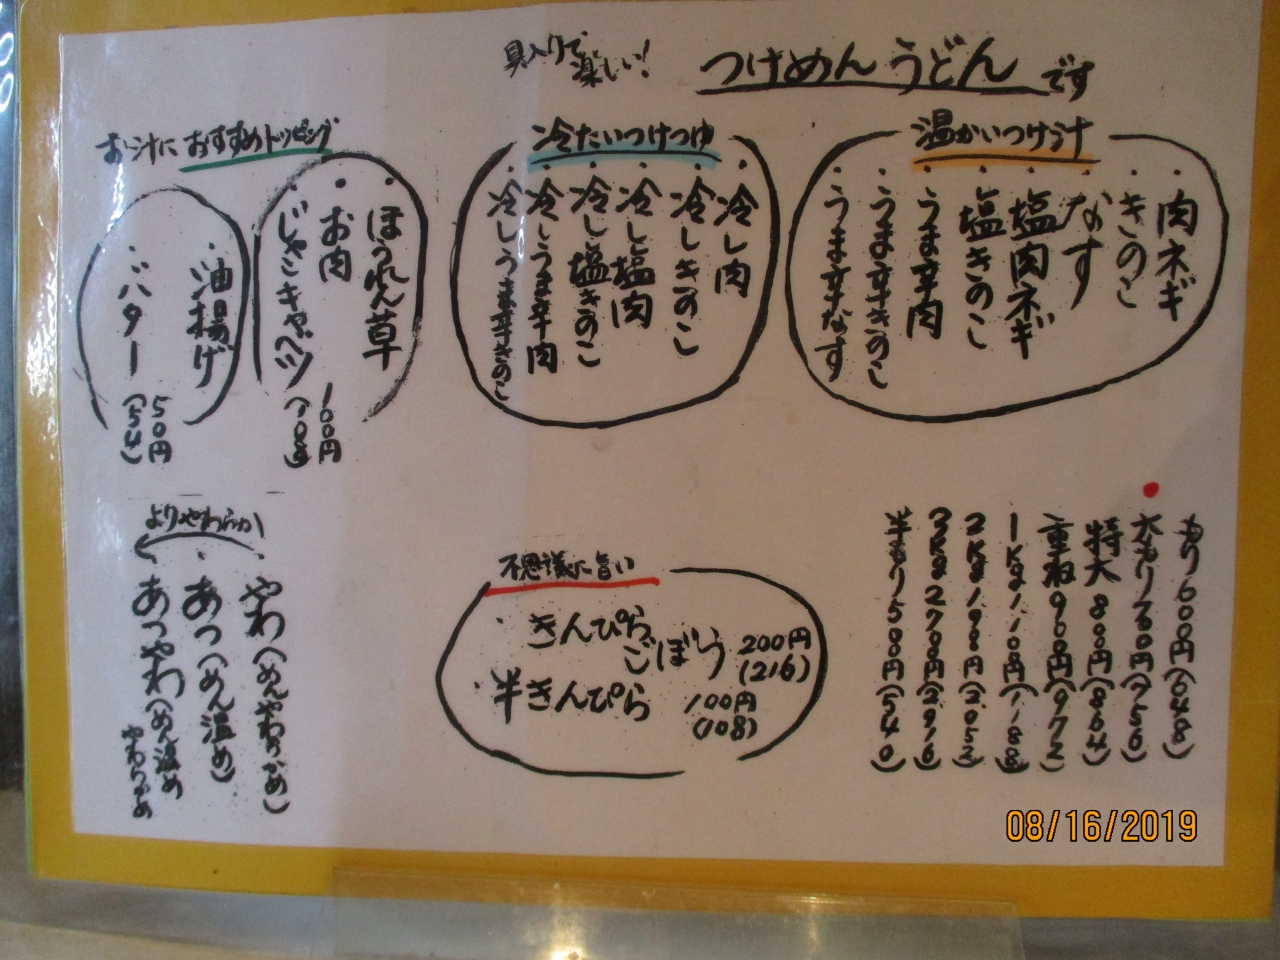 具入りで楽しい！
つけめんうどんです
温かいつけ汁
・肉ネギ
・きのこ
・なす
・塩肉ネギ
・塩きのこ
・うま辛肉
・うま辛きのこ
・うま辛なす
冷たいつけつゆ
・冷し肉
・冷しきのこ
・冷し塩肉
・冷し塩きのこ
・冷しうま辛肉
・冷しうま辛きのこ
お汁におすすめトッピング
・ほうれん草
・お肉
・じゃこキャベツ
100円
(108)
・油揚げ
・バター
50円
(54)
もり600円(648)
大もり700円(756)
特大800円(864)
重ね900円(972)
1Kg1,100円(1,188)
2Kg1,900円(2,052)
3Kg2,700円(2,916)
半もり500円(540)
不思議に旨い
・きんぴらごぼう 200円
(216)
・半きんぴら 100円
(108)
よりやわらか
・やわ(めんやわらかめ)
・あつ(めん温め)
・あつやわ(めん温め
やわらかめ
08/16/2019